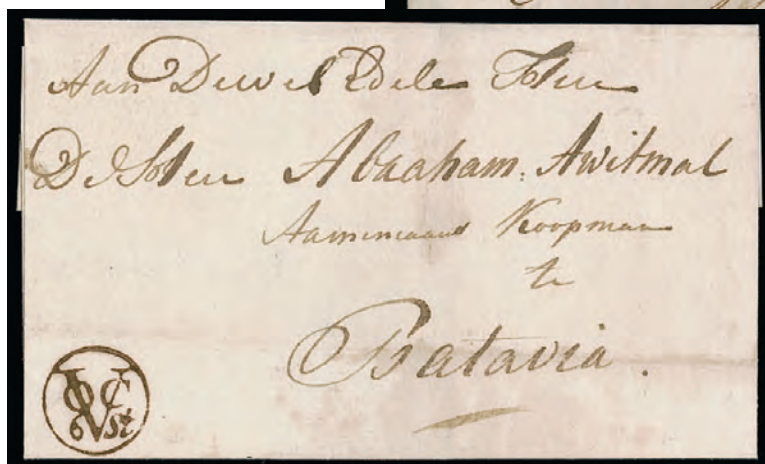 Aan Dewel Edele Heer
De Heer Abraham. Awitmal
Koopman
te
Batavia.
VOC
6 St